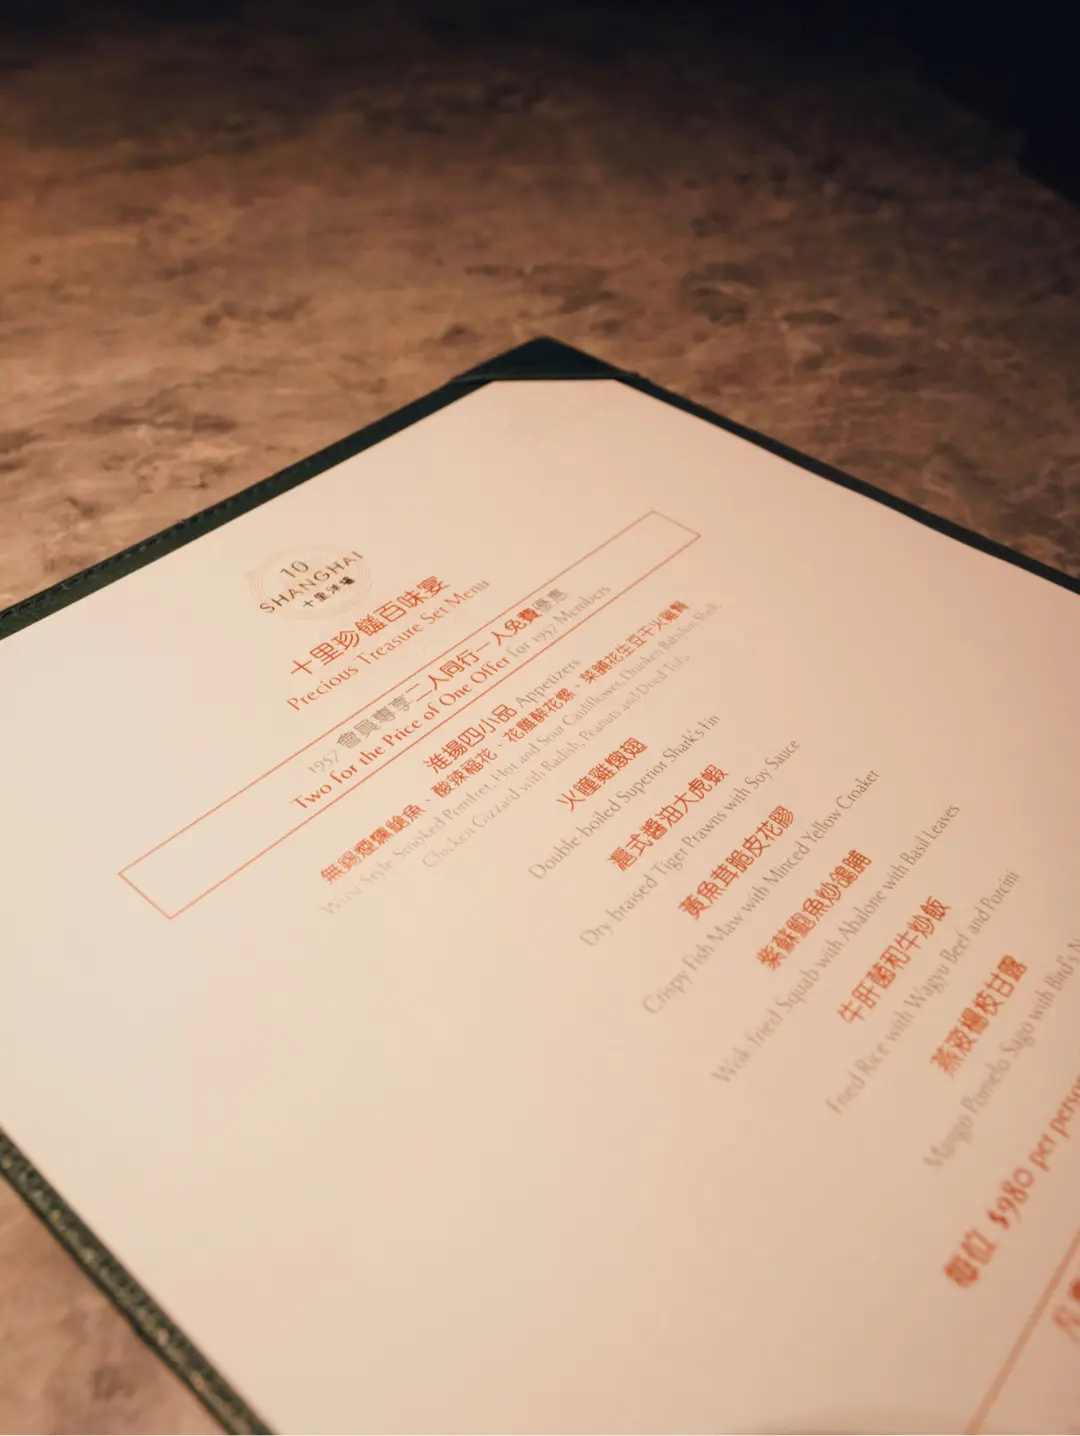 10
SHANGHAI
十里洋場
十里珍饈百味宴
Precious Treasure Set Menu
1957 會員專享二人同行一人免費優惠
Two for the Price of One Offer for 1957 Members
淮揚四小品 Appetizers
無錫煙燻鯧魚、酸辣福花、花雕醉花螺、菜脯花生豆干火雞腎
Wuxi Style Smoked Pomfret, Hot and Sour Cauliflower, Drunken Babylon Shell,
Chicken Gizzard with Radish, Peanuts and Dried Tofu
火瞳雞燉翅
Double-boiled Superior Shark's Fin
滬式醬油大虎蝦
Dry braised Tiger Prawns with Soy Sauce
黃魚茸脆皮花膠
Crispy Fish Maw with Minced Yellow Croaker
紫蘇鮑魚炒鴿脯
Wok fried Squab with Abalone with Basil Leaves
牛肝菌和牛炒飯
Fried Rice with Wagyu Beef and Porcini
燕液楊枝甘露
Mango Pomelo Sago with Bird's
每位 $980 per person